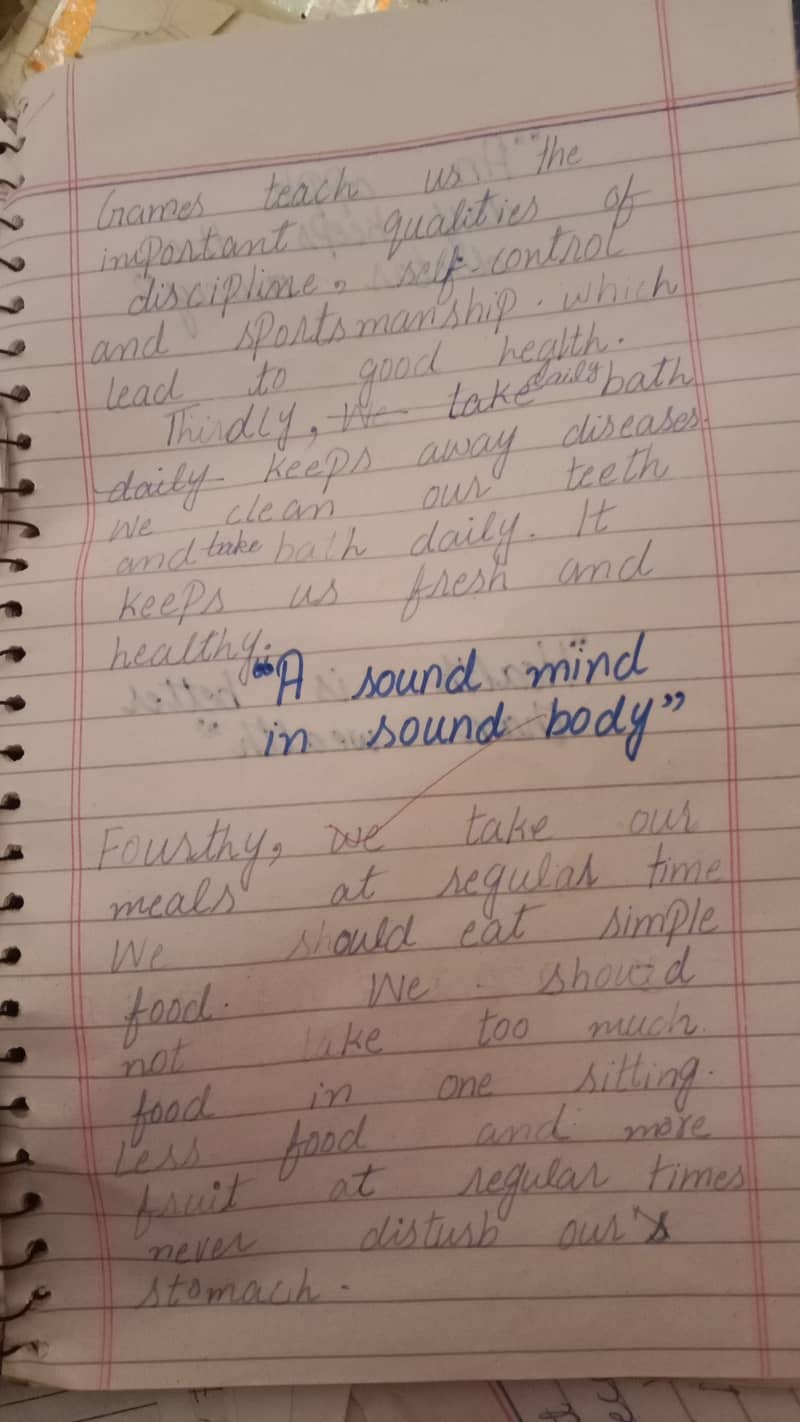 Games teach us the
important qualities of
discipline, self-control
and sportsmanship. which
lead to good health.
Thirdly, We take daily bath
daily keeps away diseases.
we clean our teeth
and take bath daily. It
keeps us fresh and
healthy.
"A sound mind
in sound body"
Fourthy, we take our
meals at regular time
We should eat simple
food. We should
not take too much
food in one sitting.
Less food and more
fruit at regular times
never disturb our's
stomach.